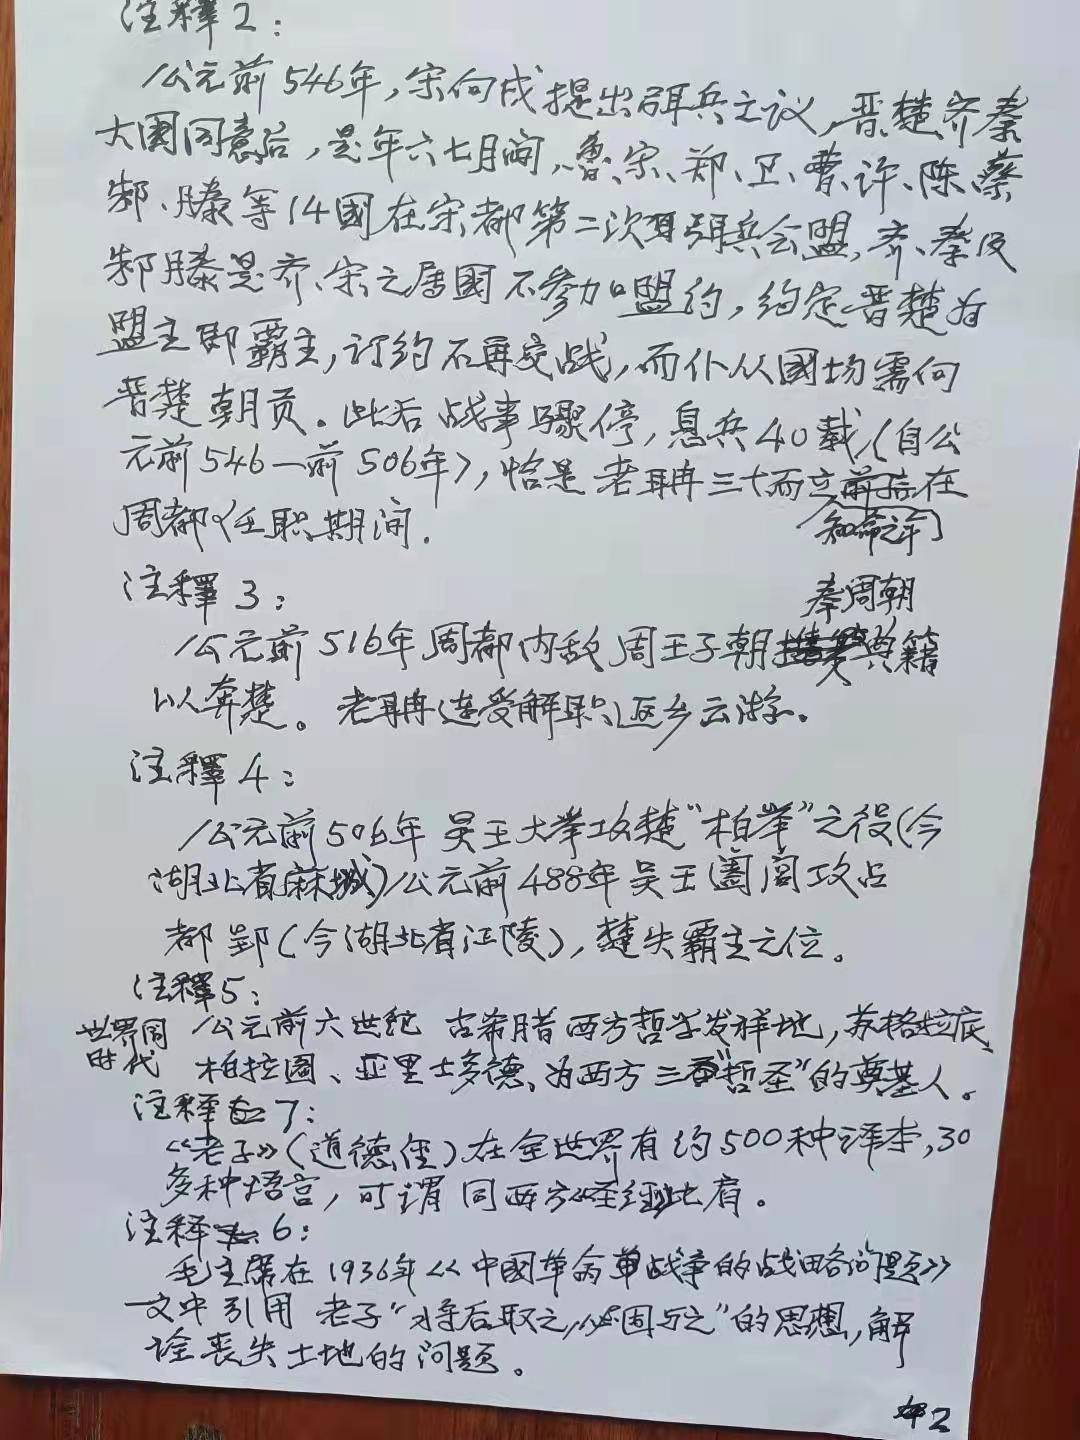 注釋2:
公元前546年,宋向戌提出弭兵之议,晋楚齐秦
大國同意后,是年六七月间,鲁、宋、郑、卫、曹、许、陈、蔡
邾、滕等14國在宋都第二次弭兵会盟,齐、秦及
邾滕是齐、宋之属國不参加盟约,约定晋楚为
盟主即霸主,订约不再交战,而仆从國均需向
晋楚朝贡。此后战事骤停,息兵40载(自公
元前546—前506年),恰是老聃三十而立前后在
知命之年
周都任职期间.
注釋3:
奉周朝
公元前516年周都内敌周王子朝典籍
以奔楚。老聃连受解职返乡云游.
注釋4:
公元前506年吴王大举攻楚"柏举"之役(今
湖北省麻城)公元前488年吴王阖闾攻占
都郢(今湖北省江陵),楚失霸主之位。
注釋5:
世界同
时代
公元前六世纪 古希腊西方哲学发祥地,苏格拉底、
柏拉圖、亚里士多德、为西方三"哲圣"的奠基人。
注释7:
《老子》(道德经)在全世界有约500种译本,30
多种语言,可谓同西方《圣经》比肩。
注释6:
毛主席在1936年《中國革命战争的战略问题》
一文中引用 老子"将后取之,必固与之"的思想,解
诠丧失土地的问题。
2